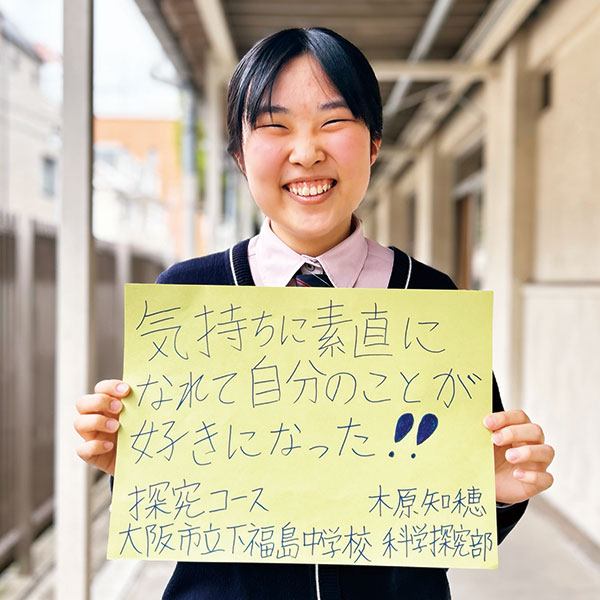 気持ちに素直に
なれて自分のことが
好きになった!!
探究コース 木原知穂
大阪市立下福島中学校 科学探究部